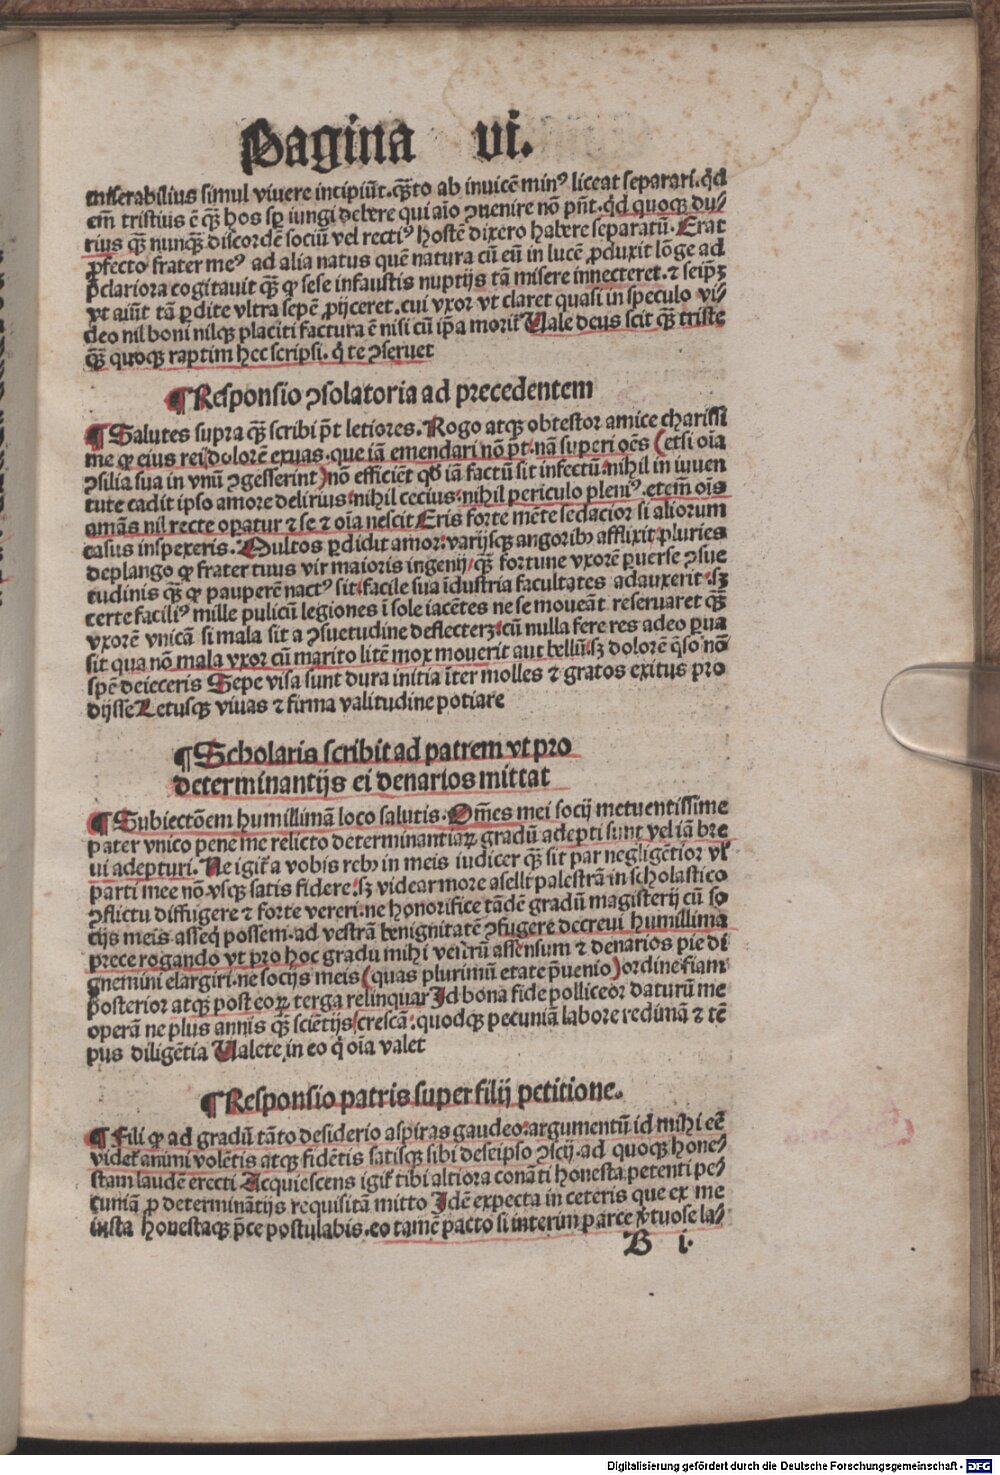 Pagina vi.
miserabilius simul vivere incipiũt. q̃to ab invicẽ minꝰ liceat separari. qd̃
em̃ tristius ẽ q̃ hos sp̱ iungi debere qui aĩo ꝯuenire nõ pñt. qd̃ quoqꝫ du⸗
rius q̃ nunq̃ discordẽ sociũ vel rectiꝰ hostẽ dixero habere separatũ. Erat
ꝓfecto frater meꝰ ad alia natus quẽ natura cũ eũ in lucẽ ꝓduxit lõge ad
p̃clariora cogitauit q̃ ꝙ sese infaustis nuptijs tã misere innecteret. ⁊ seip̃ꝫ
vt aiũt tã ꝑdite vltra sepẽ ꝓijceret. cui vxor vt claret quasi in speculo vi⸗
deo nil boni nilqꝫ placiti factura ẽ nisi cũ ip̃a morit̃ Uale deus scit q̃ triste
q̃ quoqꝫ raptim hec scripsi. q̇ te ꝯseruet
¶ Responsio ꝯsolatoria ad precedentem
¶ Salutes supra q̃ scribi p̃t letiores. Rogo atqꝫ obtestor amice charissi
me ꝙ eius rei dolorẽ exuas. que iã emendari nõ p̃t. nã superi oẽs (etsi oĩa
ꝯsilia sua in vnũ ꝯgesserint) nõ efficiẽt qd̃ iã factũ sit infectũ. nihil in iuuen
tute cadit ipso amore delirius. nihil cecius. nihil periculo pleniꝰ. etem̃ oĩs
amãs nil recte oꝑatur ⁊ se ⁊ oĩa nescit Eris forte mẽte sedacior si aliorum
casus inspexeris. Multos ꝑdidit amor: varijsqꝫ angoribꝰ afflixit. pluries
deplango ꝙ frater tuus vir maioris ingenij q̃ fortune vxorẽ ꝑuerse ꝯsue
tudinis q̃ ꝙ pauperẽ nactꝰ sit. facile sua ĩdustria facultates adauxerit. sꝫ
certe faciliꝰ mille pulicũ legiones ĩ sole iacẽtes ne se moueãt reseruaret q̃
vxorẽ vnicã si mala sit a ꝯsuetudine deflecterꝫ. cũ nulla fere res adeo ꝑua
sit qua nõ mala vxor cũ marito litẽ mox mouerit aut bellũ. sꝫ dolorẽ q̃so nõ
spẽ deieceris Sepe visa sunt dura initia ĩter molles ⁊ gratos exitus pro
dijsse Letusqꝫ viuas ⁊ firma valitudine potiare
¶ Scholaris scribit ad patrem vt pro
determinantijs ei denarios mittat
¶ Subiectõem humillimã loco salutis. Om̃es mei socij metuentissime
pater vnico pene me relicto determinantiaꝝ gradũ adepti sunt vel iã bre
ui adepturi. Ne igit̃ a vobis rebꝰ in meis iudicer q̃ sit par negligẽtior vl̃
parti mee nõ vsqꝫ satis fidere. sꝫ videar more aselli palestrã in scholastico
ꝯflictu diffugere ⁊ forte vereri. ne honorifice tãdẽ gradũ magisterij cũ so
cijs meis asseq̇ possem. ad vestrã benignitatẽ ꝯfugere decreui humillima
prece rogando vt pro hoc gradu mihi vestrũ assensum ⁊ denarios pie di
gnemini elargiri. ne socijs meis (quas plurimũ etate p̃uenio) ordine fiam
posterior atqꝫ post eoꝝ terga relinquar Id bona fide polliceor daturũ me
operã ne plus annis q̃ sciẽtijs crescã: quodqꝫ pecuniã labore redimã ⁊ tẽ
pus diligẽtia Ualete in eo q̇ oĩa valet
¶ Responsio patris super filij petitione.
¶ Fili ꝙ ad gradũ tãto desiderio aspiras gaudeo: argumentũ id mihi eẽ
videt̃ animi volẽtis atqꝫ fidẽtis satisqꝫ sibi de seipso ꝯscij. ad quoqꝫ hone⸗
stam laudẽ erecti Acquiescens igit̃ tibi altiora conãti honesta petenti pe⸗
cuniã ꝓ determinãtijs requisitã mitto Idẽ expecta in ceteris que ex me
iusta honestaqꝫ p̃ce postulabis. eo tamẽ pacto si interim parce v̾tuose la⸗
B i.
Digitalisierung gefördert durch die Deutsche Forschungsgemeinschaft - DFG